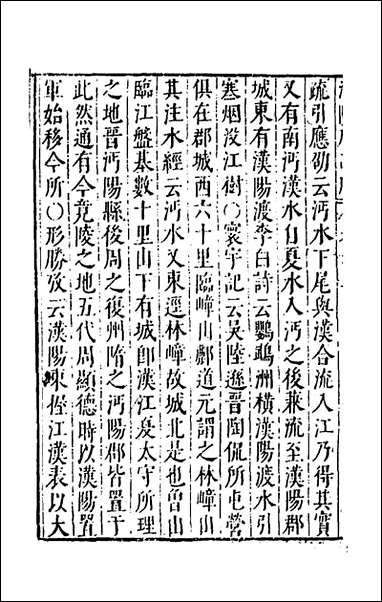 疏引應劭云沔水下尾與漢合流入江乃得其實
又有南沔漢水自夏水入沔之後兼流至漢陽郡
城東有漢陽渡李白詩云鸚鵡洲橫漢陽渡水引
寒烟没江樹○寰宇記云吴陸遜晉陶侃所屯營
俱在郡城西六十里臨嶂山酈道元謂之林嶂山
其注水經云沔水又東逕林嶂故城北是也魯山
臨江盤基數十里山下有城即漢江夏太守所理
之地晉沔陽縣後周之復州隋之沔陽郡皆置于
此然通有今竟陵之地五代周顯德時以漢陽置
軍始移今所○形勝攷云漢陽東控江漢表以大